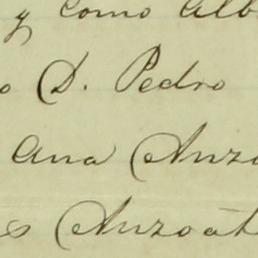 y como Alb
o D. Pedro
Ana Anzo
s Anzoát